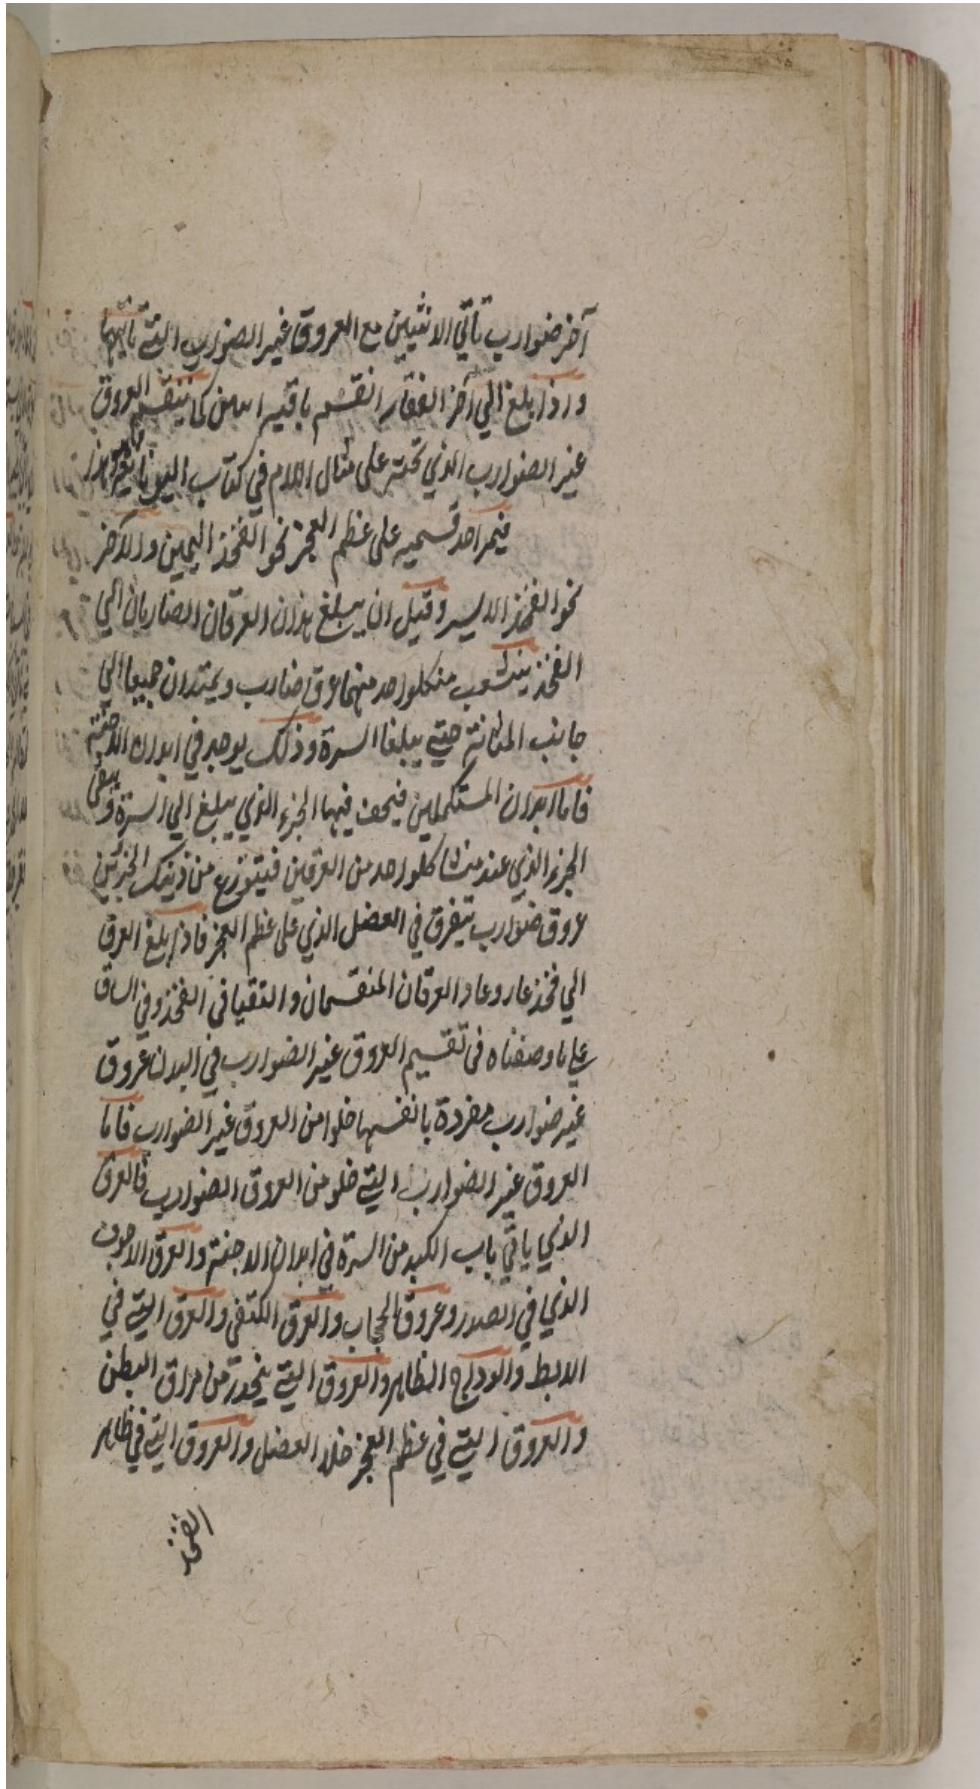 آخر ضوارب تاتي الانثيين مع العروق غير الضوارب التي تاتيها
واذا بلغ الي آخر الفقار انقسم باقيه اسين كما ينقسم العروق
غير الضوارب الذي تحته على مثال اللام في كتاب اليونانيين
فيمر احد قسميه على عظم العجز نحو الفخذ اليمين والآخر
نحو الفخذ الايسر وقبل ان يبلغ هذان العرقان الضاربان الي
الفخذ ينشعب من كلواحد منهما عرق ضارب ويمتدان جميعا الي
جانب المثانة حتي يبلغا السرة وذلك يوجد في ابدان الاجنة
فاما ابدان المستكملين فيجف فيها الجزء الذي يبلغ الي السرة ويبقي
الجزء الذي عند منشا كلواحد من العرقين فيتوزع من ذينك الجزئين
عروق ضوارب تتفرق في العضل الذي على عظم العجز فاذا بلغ العرق
الي فخذ عار وعاد العرقان المنقسمان والتقيا في الفخذ وفي الساق
علي ما وصفناه في تقسيم العروق غير الضوارب في البدن عروق
غير ضوارب مفردة بانفسها خلوا من العروق غير الضوارب فاما
العروق غير الضوارب التي خلو من العروق الضوارب فالعرق
الذي ياتي باب الكبد من السرة في ابدان الاجنة والعرق الاجوف
الذي في الصدر وعروق الحجاب والعرق الكتفي والعرق التي في
الابط والوداج الظاهر والعروق التي ينحدر من مراق البطن
والعروق التي في عظم العجز خلا العضل والعروق التي في ظاهر
الفخذ